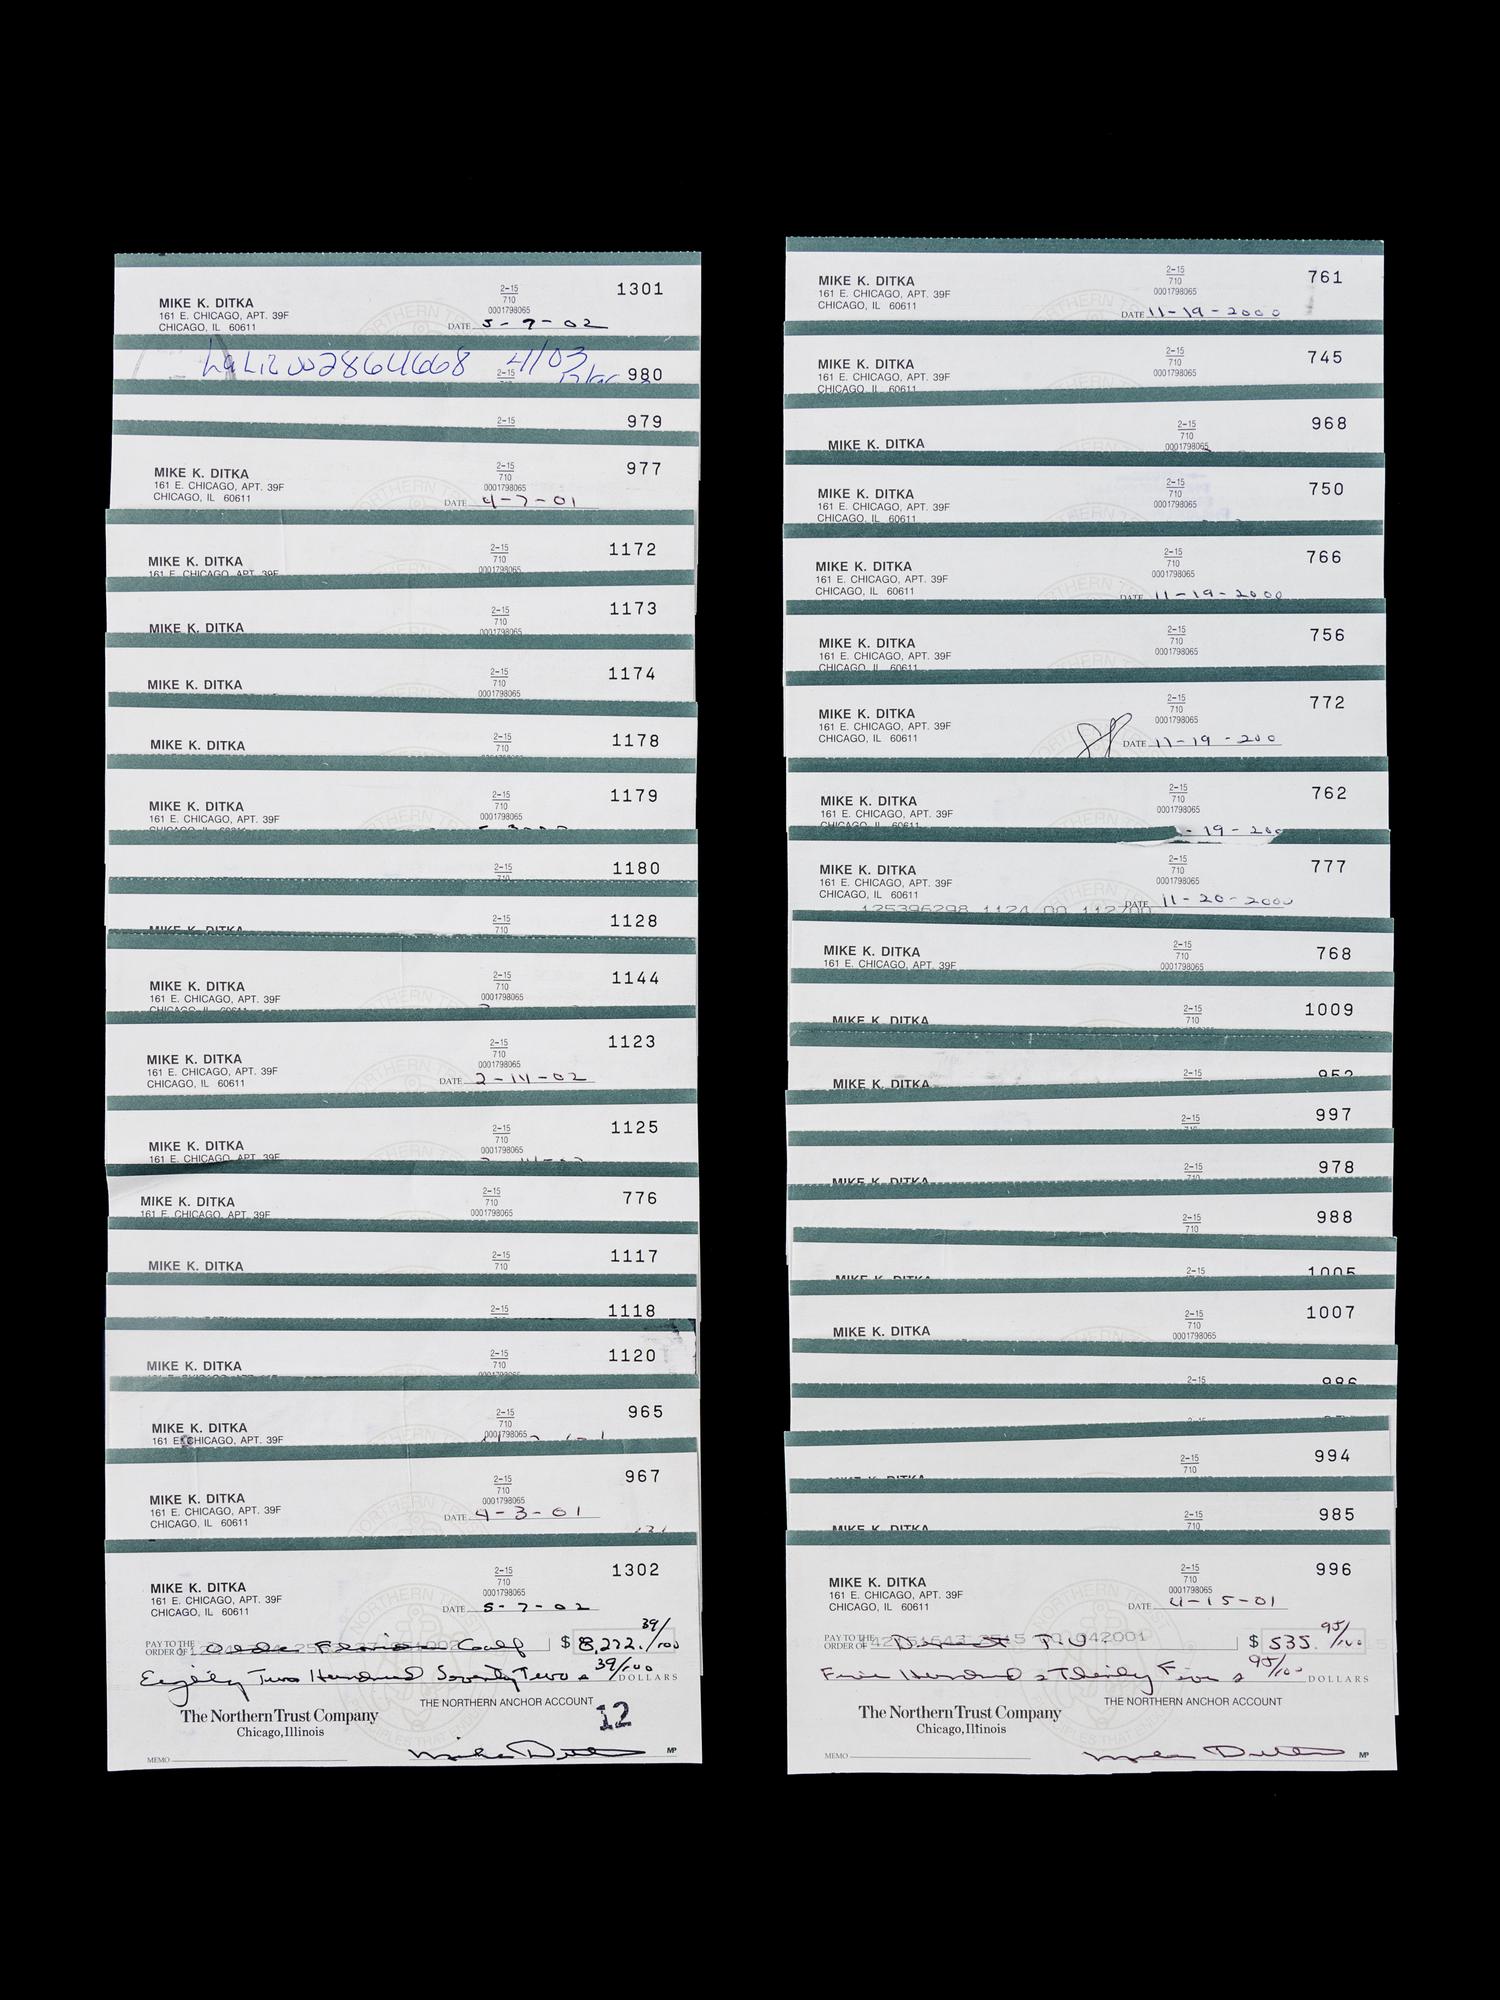 MIKE K. DITKA
161 E. CHICAGO, APT. 39F
CHICAGO, IL 60611
2-15
710
0001798065
1301
DATE 5-7-02
4/03
2-15
980
2-15
979
MIKE K. DITKA
161 E. CHICAGO, APT. 39F
CHICAGO, IL 60611
2-15
710
0001798065
977
DATE 4-7-01
MIKE K. DITKA
161 E. CHICAGO, APT. 39F
2-15
710
0001798065
1172
MIKE K. DITKA
2-15
710
0001798065
1173
MIKE K. DITKA
2-15
710
0001798065
1174
MIKE K. DITKA
2-15
710
1178
MIKE K. DITKA
161 E. CHICAGO, APT. 39F
CHICAGO, IL 60611
2-15
710
0001798065
1179
2-15
710
1180
MIKE K. DITKA
2-15
710
1128
MIKE K. DITKA
161 E. CHICAGO, APT. 39F
CHICAGO, IL 60611
2-15
710
0001798065
1144
MIKE K. DITKA
161 E. CHICAGO, APT. 39F
CHICAGO, IL 60611
2-15
710
0001798065
1123
DATE 2-14-02
MIKE K. DITKA
161 E. CHICAGO, APT. 39F
2-15
710
0001798065
1125
MIKE K. DITKA
161 E. CHICAGO, APT. 39F
2-15
710
0001798065
776
MIKE K. DITKA
2-15
710
1117
2-15
1118
MIKE K. DITKA
2-15
710
1120
MIKE K. DITKA
161 E. CHICAGO, APT. 39F
2-15
710
0001798065
965
MIKE K. DITKA
161 E. CHICAGO, APT. 39F
CHICAGO, IL 60611
2-15
710
0001798065
967
DATE 4-3-01
MIKE K. DITKA
161 E. CHICAGO, APT. 39F
CHICAGO, IL 60611
2-15
710
0001798065
1302
DATE 5-7-02
PAY TO THE ORDER OF Olde Florida Golf $ 8,272. 39/100
Eighty Two Hundred Seventy Two & 39/100 DOLLARS
THE NORTHERN ANCHOR ACCOUNT
The Northern Trust Company
Chicago, Illinois
12
MEMO
Mike Ditka
MP
MIKE K. DITKA
161 E. CHICAGO, APT. 39F
CHICAGO, IL 60611
2-15
710
0001798065
761
DATE 11-19-2000
MIKE K. DITKA
161 E. CHICAGO, APT. 39F
CHICAGO, IL 60611
2-15
710
0001798065
745
MIKE K. DITKA
2-15
710
0001798065
968
MIKE K. DITKA
161 E. CHICAGO, APT. 39F
CHICAGO, IL 60611
2-15
710
0001798065
750
MIKE K. DITKA
161 E. CHICAGO, APT. 39F
CHICAGO, IL 60611
2-15
710
0001798065
766
DATE 11-19-2000
MIKE K. DITKA
161 E. CHICAGO, APT. 39F
CHICAGO, IL 60611
2-15
710
0001798065
756
MIKE K. DITKA
161 E. CHICAGO, APT. 39F
CHICAGO, IL 60611
2-15
710
0001798065
772
DATE 11-19-200
MIKE K. DITKA
161 E. CHICAGO, APT. 39F
CHICAGO, IL 60611
2-15
710
0001798065
762
-19-200
MIKE K. DITKA
161 E. CHICAGO, APT. 39F
CHICAGO, IL 60611
2-15
710
0001798065
777
DATE 11-20-2000
125396298 1124 00 112700
MIKE K. DITKA
161 E. CHICAGO, APT. 39F
2-15
710
0001798065
768
MIKE K. DITKA
2-15
710
1009
MIKE K. DITKA
2-15
952
2-15
997
MIKE K. DITKA
2-15
710
978
2-15
710
988
MIKE K. DITKA
2-15
1005
MIKE K. DITKA
2-15
710
0001798065
1007
2-15
986
MIKE K. DITKA
2-15
710
994
MIKE K. DITKA
2-15
710
985
MIKE K. DITKA
161 E. CHICAGO, APT. 39F
CHICAGO, IL 60611
2-15
710
0001798065
996
DATE 4-15-01
PAY TO THE ORDER OF Direct T.V. $ 535. 95/100
Five Hundred & Thirty Five & 95/100 DOLLARS
THE NORTHERN ANCHOR ACCOUNT
The Northern Trust Company
Chicago, Illinois
MEMO
Mike Ditka
MP